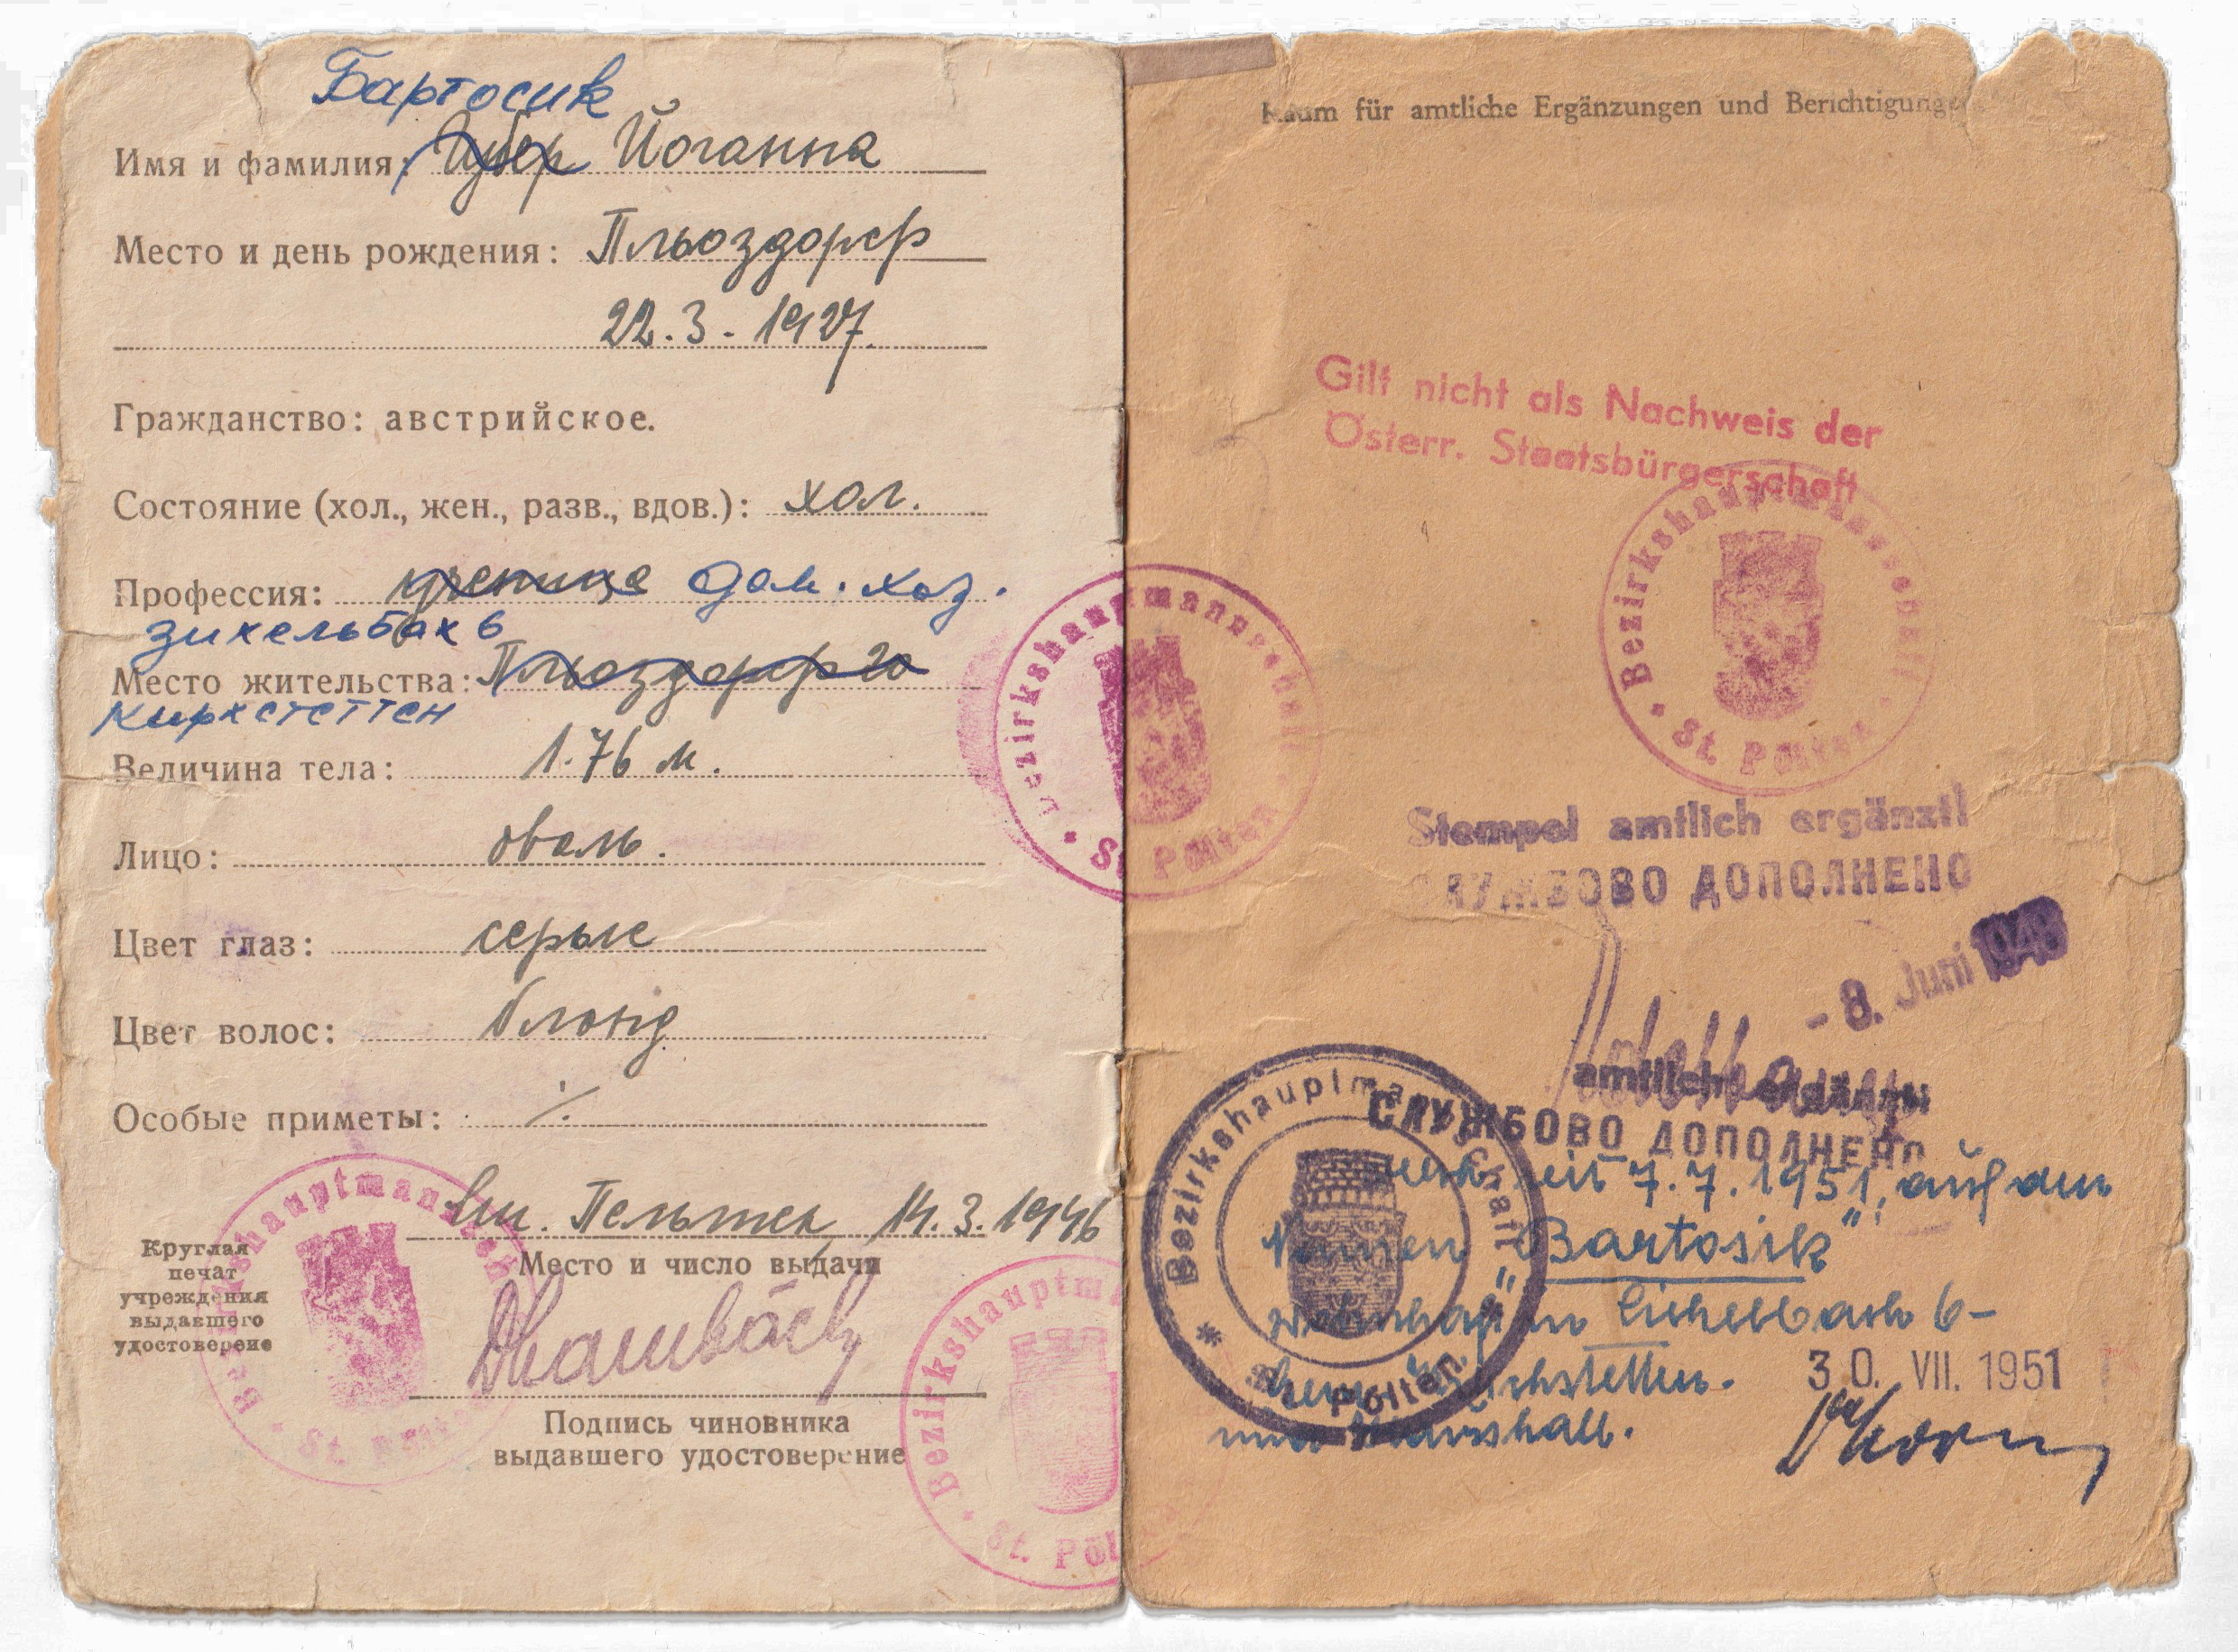 Бартосик
Имя и фамилия: Губер Йоганна
Место и день рождения: Пльоздорф
22.3.-1927.
Гражданство: австрийское.
Состояние (хол., жен., разв., вдов.): хол.
Профессия: дом. хоз.
зихельбах 6
Место жительства: Пльоздорф 20
Кирхстеттен
Величина тела: 1.76 м.
Лицо: оваль.
Цвет глаз: серые
Цвет волос: блонд
Особые приметы: ./.
Пельтен, 14.3.1946
Место и число выдачи
Круглая
печат
учреждения
выдавшего
удостоверение
Подпись чиновника
выдавшего удостоверение
Bezirkshauptmannschaft
* St. Pölten *
Bezirkshauptmannschaft
* St. Pölten
Bezirkshauptmannschaft
* St. Pölten *
Raum für amtliche Ergänzungen und Berichtigungen
Gilt nicht als Nachweis der
Österr. Staatsbürgerschaft
Bezirkshauptmannschaft
* St. Pölten *
Stempel amtlich ergänzt!
СЛУЖБОВО ДОПОЛНЕНО
- 8. Juni 1948
amtlich ergänzt
СЛУЖБОВО ДОПОЛНЕНО
seit 7.7.1951, auf den
Namen "Bartosik"
wohnhaft in Sichelbach 6-
Kirchstetten.
30. VII. 1951
Haushalt.
Bezirkshauptmannschaft
* St. Pölten